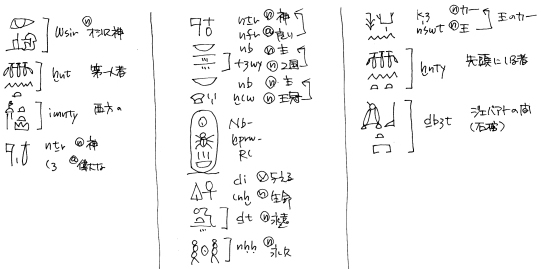 wsir ⓝ オシリス神
ḫnt 第一人者
imnty 西方の
nṯr ⓝ 神
ꜥ3 ⓐ 偉大な
nṯr ⓝ 神
nfr ⓐ 良い
nb ⓝ 主
t3wy ⓝ 2国
nb ⓝ 主
ḫꜥw ⓝ 王冠
Nb-
ḫprw-
Rꜥ
di ⓥ 与える
ꜥnḫ ⓝ 生命
ḏt ⓝ 永遠
nḥḥ ⓝ 永久
k3 ⓝ カー
nswt ⓝ 王
王のカー
ḫnty 先頭にいる者
ḏb3t ジェバアトの間